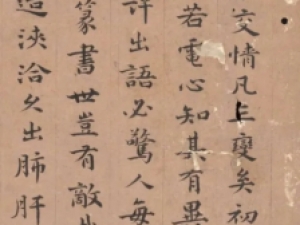 交情凡三變矣初
若電心知其有異
許出語必驚人每
篆書世豈有敵
浹洽久出肺肝